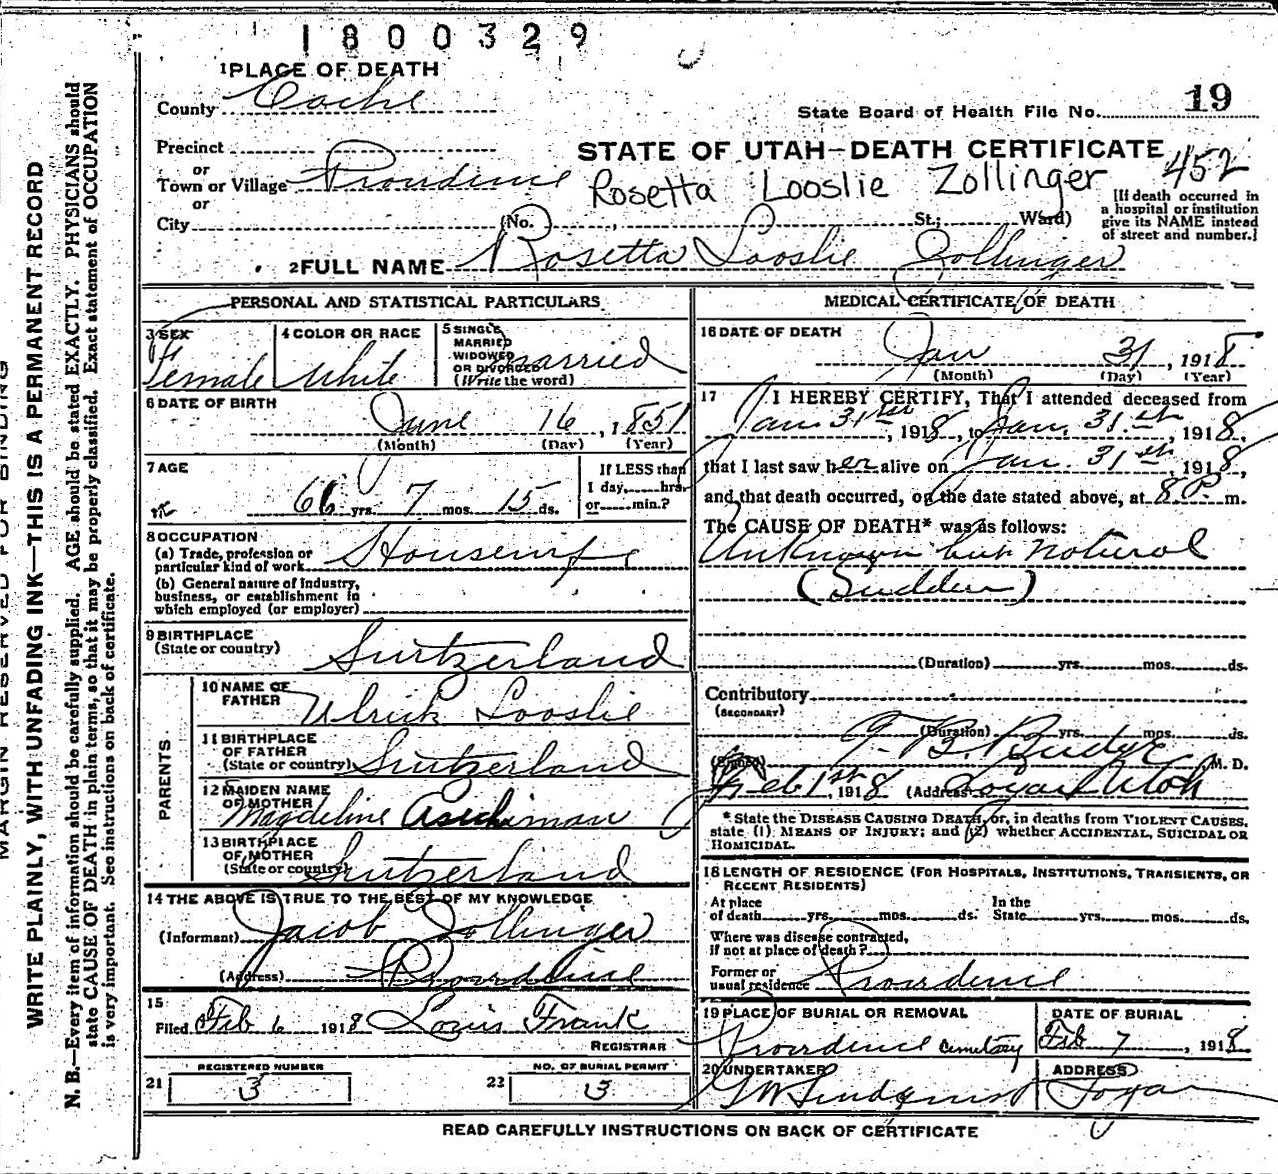 1800329
1 PLACE OF DEATH
County Cache
State Board of Health File No. 19
Precinct
or
Town or Village Providence
or
City (No. St.; Ward)
STATE OF UTAH—DEATH CERTIFICATE
452
Rosetta Looslie Zollinger
[If death occurred in
a hospital or institution
give its NAME instead
of street and number.]
2 FULL NAME Rosetta Looslie Zollinger
PERSONAL AND STATISTICAL PARTICULARS
3 SEX
Female
4 COLOR OR RACE
White
5 SINGLE
MARRIED
WIDOWED
OR DIVORCED
(Write the word)
Married
6 DATE OF BIRTH
June 16, 1851
(Month) (Day) (Year)
7 AGE
66 yrs. 7 mos. 15 ds.
If LESS than
1 day, hrs.
or min.?
8 OCCUPATION
(a) Trade, profession or
particular kind of work Housewife
(b) General nature of industry,
business, or establishment in
which employed (or employer)
9 BIRTHPLACE
(State or country) Switzerland
PARENTS
10 NAME OF
FATHER Ulrich Looslie
11 BIRTHPLACE
OF FATHER
(State or country) Switzerland
12 MAIDEN NAME
OF MOTHER
Magdeline
13 BIRTHPLACE
OF MOTHER
(State or country) Switzerland
14 THE ABOVE IS TRUE TO THE BEST OF MY KNOWLEDGE
(Informant) Jacob Zollinger
(Address) Providence
15
Filed Feb 6 1918 Louis Frank
REGISTRAR
REGISTERED NUMBER
21 3
NO. OF BURIAL PERMIT
22 3
MEDICAL CERTIFICATE OF DEATH
16 DATE OF DEATH
Jan 31, 1918
(Month) (Day) (Year)
17 I HEREBY CERTIFY, That I attended deceased from
Jan. 31st, 1918, to Jan. 31st, 1918,
that I last saw her alive on Jan. 31st, 1918,
and that death occurred, on the date stated above, at 8 P. m.
The CAUSE OF DEATH* was as follows:
Unknown but natural
(Sudden)
(Duration) yrs. mos. ds.
Contributory
(SECONDARY)
(Duration) yrs. mos. ds.
(Signed) T. B. Budge M. D.
Feb 1st, 1918 (Address) Logan Utah
*State the DISEASE CAUSING DEATH, or, in deaths from VIOLENT CAUSES,
state (1) MEANS OF INJURY; and (2) whether ACCIDENTAL, SUICIDAL OR
HOMICIDAL.
18 LENGTH OF RESIDENCE (FOR HOSPITALS, INSTITUTIONS, TRANSIENTS, OR
RECENT RESIDENTS)
At place
of death yrs. mos. ds.
In the
State yrs. mos. ds.
Where was disease contracted,
if not at place of death?
Former or
usual residence Providence
19 PLACE OF BURIAL OR REMOVAL
Providence cemetary
DATE OF BURIAL
Feb 7, 1918
20 UNDERTAKER
G W Lindquist
ADDRESS
Logan
READ CAREFULLY INSTRUCTIONS ON BACK OF CERTIFICATE
MARGIN RESERVED FOR BINDING
WRITE PLAINLY, WITH UNFADING INK—THIS IS A PERMANENT RECORD
N. B.—Every item of information should be carefully supplied. AGE should be stated EXACTLY. PHYSICIANS should
state CAUSE OF DEATH in plain terms, so that it may be properly classified. Exact statement of OCCUPATION
is very important. See instructions on back of certificate.